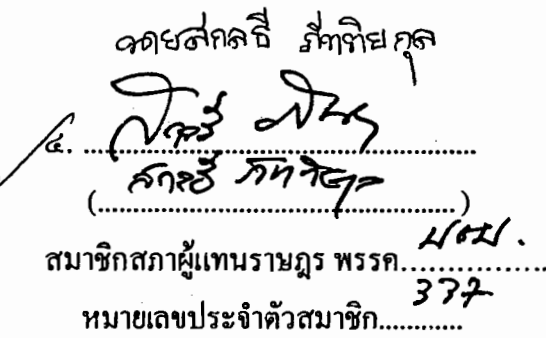 นายสกลธี ภัททิยกุล
๔. ........................................
(สกลธี ภัททิยกุล)
สมาชิกสภาผู้แทนราษฎร พรรค ปชป.
หมายเลขประจำตัวสมาชิก 337